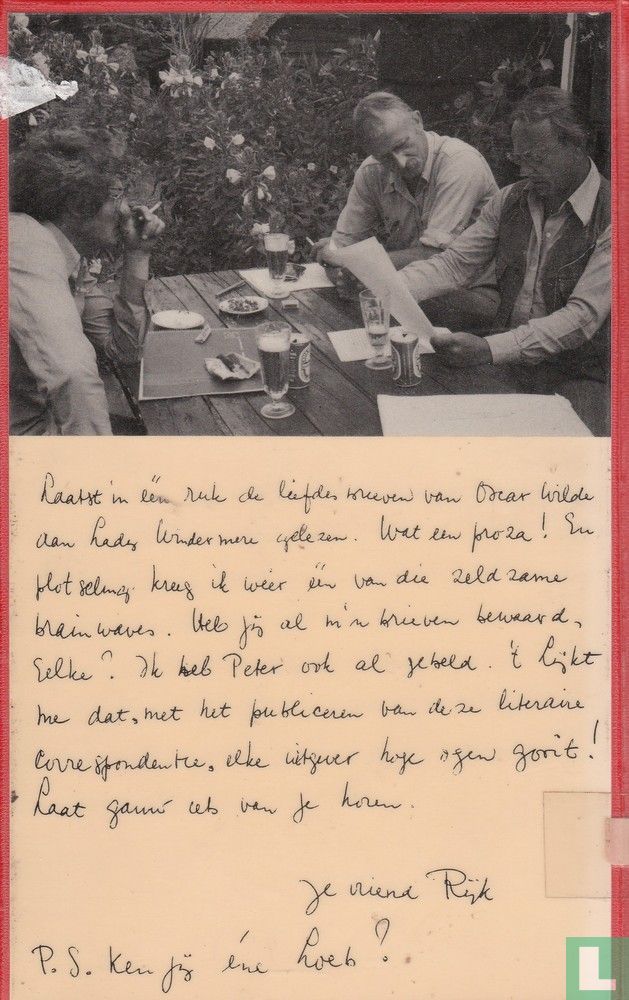 Laatst in één ruk de liefdesbrieven van Oscar Wilde
aan Lady Windermere gelezen. Wat een proza! En
plotseling kreeg ik weer één van die zeldzame
brainwaves. Heb jij al m'n brieven bewaard,
Eelke? Ik heb Peter ook al gebeld. 't Lijkt
me dat, met het publiceren van deze literaire
correspondentie, elke uitgever hoge ogen gooit!
Laat gauw iets van je horen.
je vriend Rijk
P.S. Ken jij éne Loeb?
L